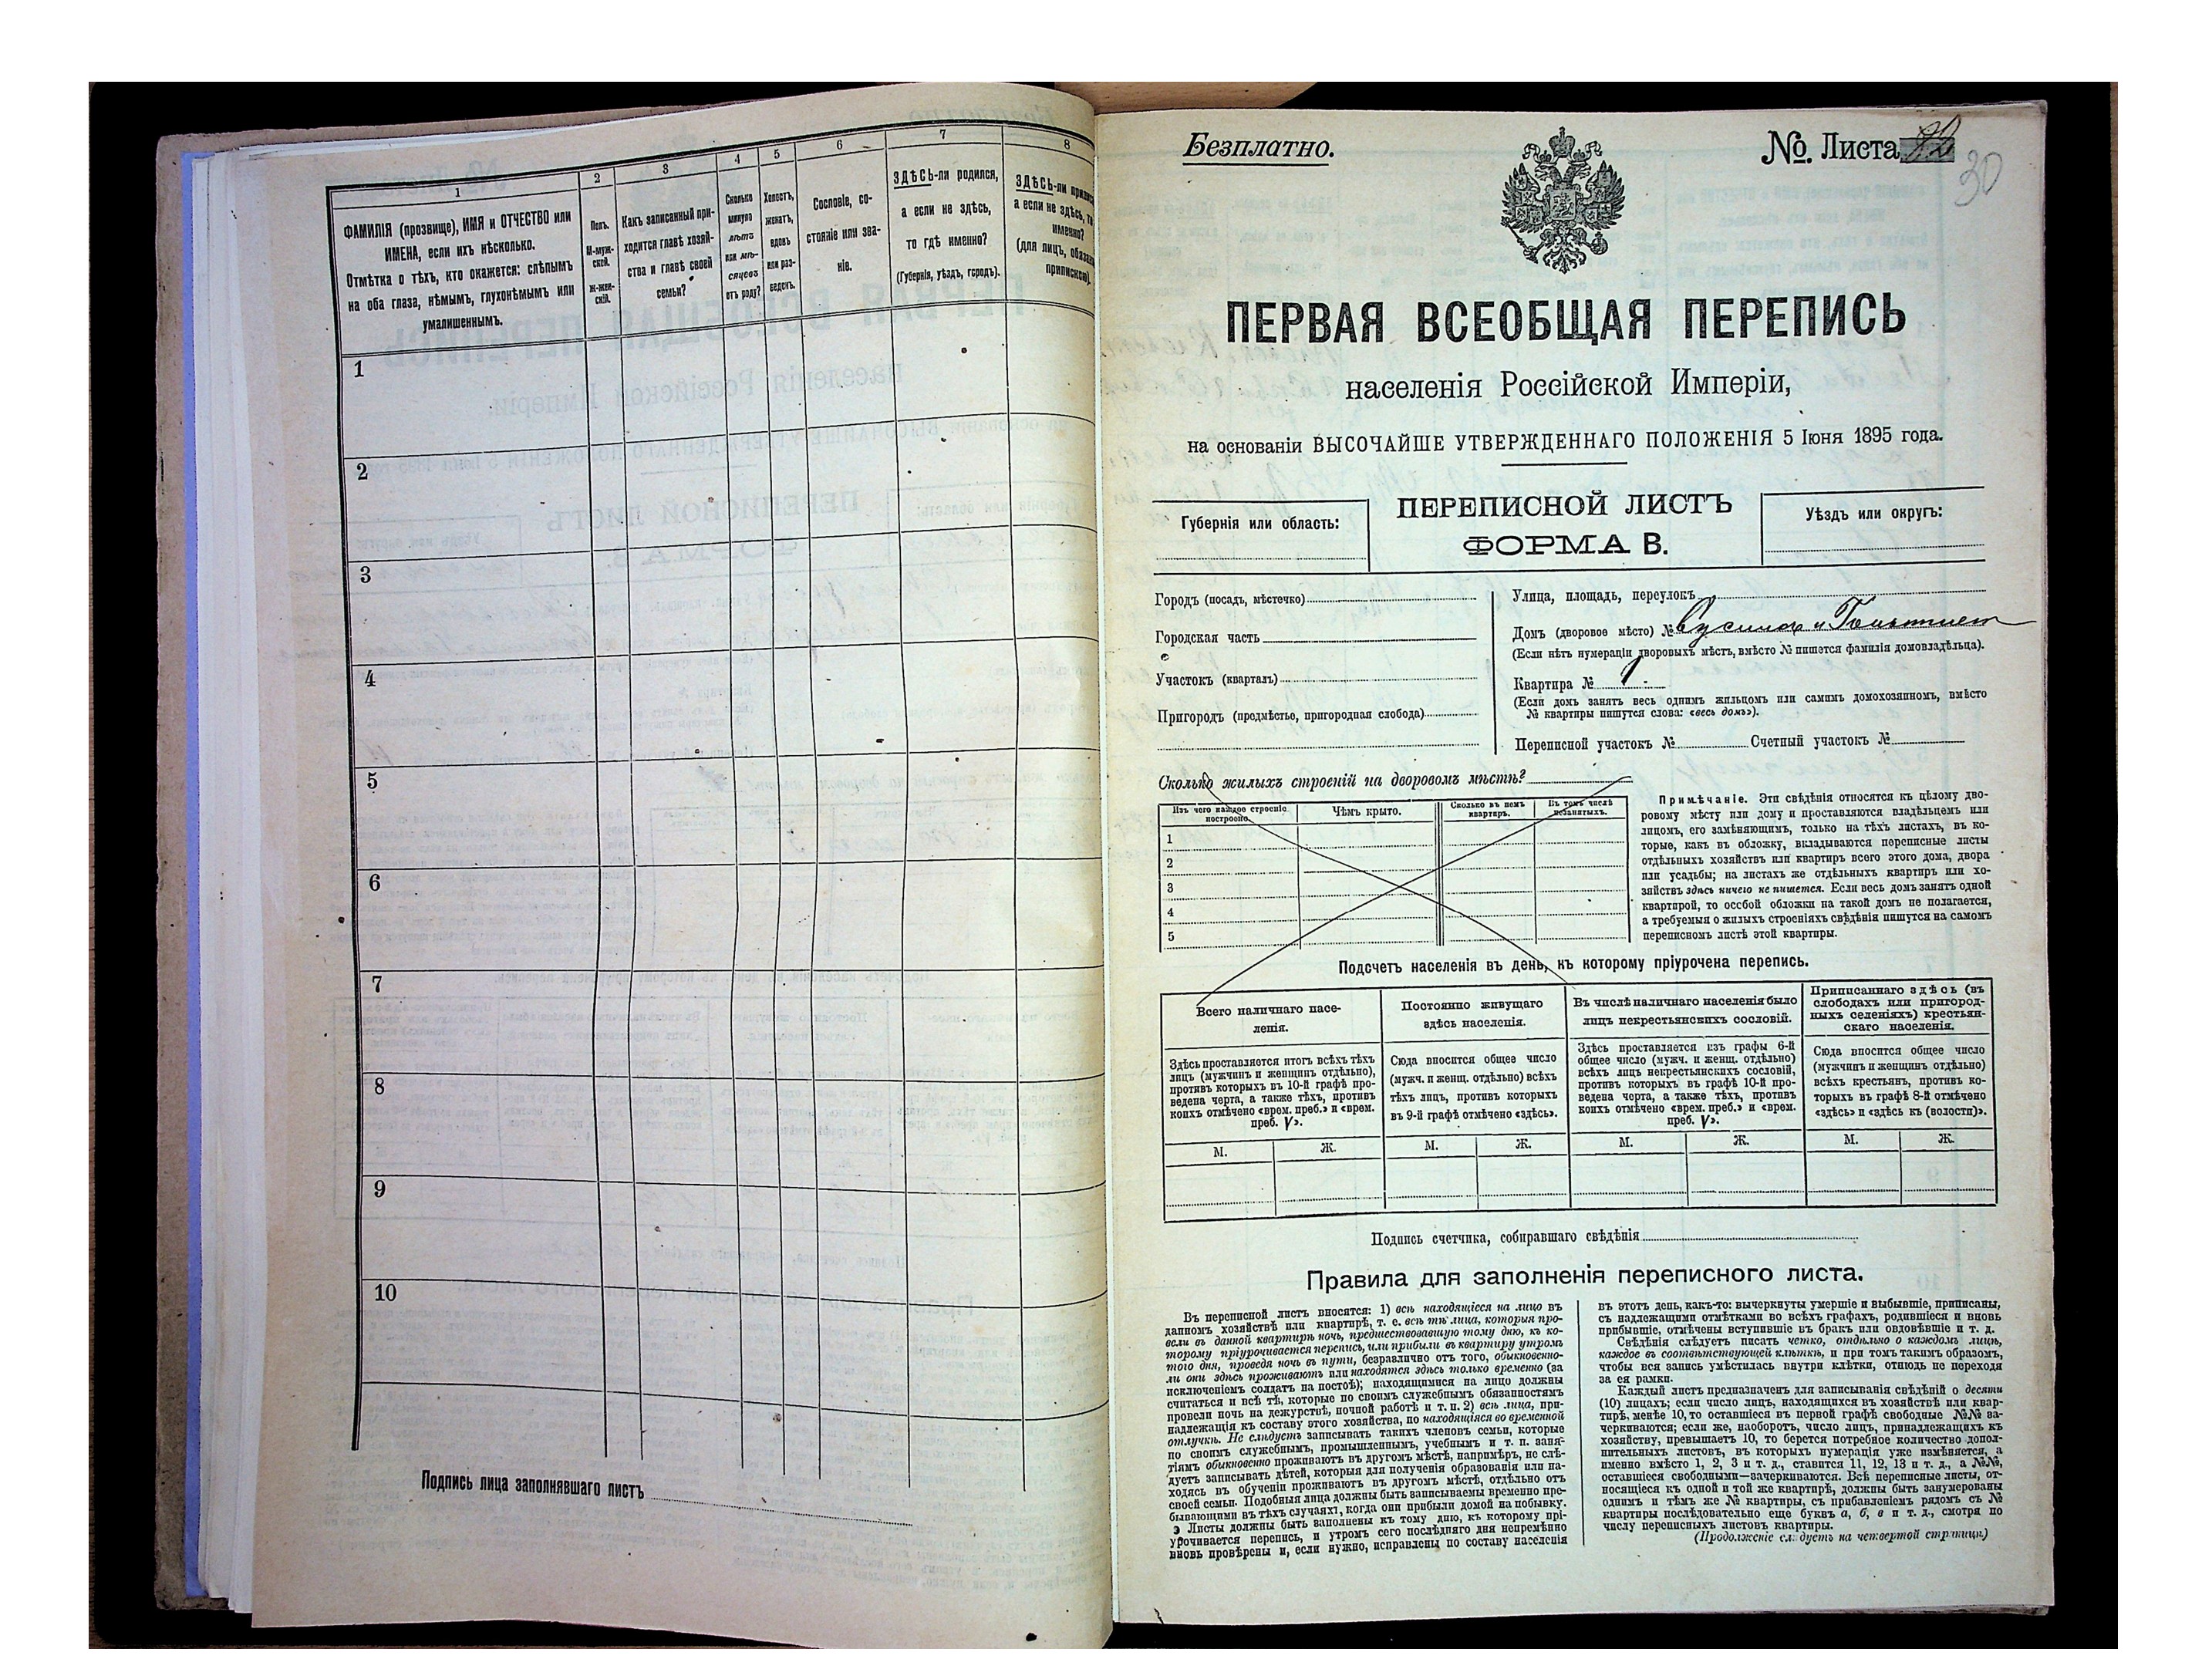 1
2
3
4
5
6
7
8
ФАМИЛІЯ (прозвище), ИМЯ и ОТЧЕСТВО или
ИМЕНА, если ихъ нѣсколько.
Отмѣтка о тѣхъ, кто окажется: слѣпымъ
на оба глаза, нѣмымъ, глухонѣмымъ или
умалишеннымъ.
Полъ.
М-муж-
ской.
Ж-жен-
скій.
Какъ записанный при-
ходится главѣ хозяй-
ства и главѣ своей
семьи?
Сколько
минуло
лѣтъ
или мѣ-
сяцевъ
отъ роду?
Холостъ,
женатъ,
вдовъ
или раз-
веденъ.
Сословіе, со-
стояніе или зва-
ніе.
ЗДѢСЬ-ли родился,
а если не здѣсь,
то гдѣ именно?
(Губернія, уѣздъ, городъ).
ЗДѢСЬ-ли
а если не здѣсь,
именно?
(для лицъ,
припискою).
1
2
3
4
5
6
7
8
9
10
Подпись лица заполнявшаго листъ
Безплатно.
№. Листа
30
ПЕРВАЯ ВСЕОБЩАЯ ПЕРЕПИСЬ
населенія Россійской Имперіи,
на основаніи ВЫСОЧАЙШЕ УТВЕРЖДЕННАГО ПОЛОЖЕНІЯ 5 Іюня 1895 года.
Губернія или область:
ПЕРЕПИСНОЙ ЛИСТЪ
ФОРМА В.
Уѣздъ или округъ:
Городъ (посадъ, мѣстечко)
Городская часть
Участокъ (кварталъ)
Пригородъ (предмѣстье, пригородная слобода)
Улица, площадь, переулокъ
Домъ (дворовое мѣсто) №
(Если нѣтъ нумераціи дворовыхъ мѣстъ, вмѣсто № пишется фамилія домовладѣльца).
Квартира № 1
(Если домъ занятъ весь однимъ жильцомъ или самимъ домохозяиномъ, вмѣсто
№ квартиры пишутся слова: «весь домъ»).
Переписной участокъ № Счетный участокъ №
Сколько жилыхъ строеній на дворовомъ мѣстѣ?
Изъ чего каждое строеніе
построено.
Чѣмъ крыто.
Сколько въ немъ
квартиръ.
Въ томъ числѣ
незанятыхъ.
1
2
3
4
5
Примѣчаніе. Эти свѣдѣнія относятся къ цѣлому дво-
ровому мѣсту или дому и проставляются владѣльцемъ или
лицомъ, его замѣняющимъ, только на тѣхъ листахъ, въ ко-
торые, какъ въ обложку, вкладываются переписные листы
отдѣльныхъ хозяйствъ или квартиръ всего этого дома, двора
или усадьбы; на листахъ же отдѣльныхъ квартиръ или хо-
зяйствъ здѣсь ничего не пишется. Если весь домъ занятъ одной
квартирой, то особой обложки на такой домъ не полагается,
а требуемыя о жилыхъ строеніяхъ свѣдѣнія пишутся на самомъ
переписномъ листѣ этой квартиры.
Подсчетъ населенія въ день, къ которому пріурочена перепись.
Всего наличнаго насе-
ленія.
Постоянно живущаго
здѣсь населенія.
Въ числѣ наличнаго населенія было
лицъ некрестьянскихъ сословій.
Приписаннаго здѣсь (въ
слободахъ или пригород-
ныхъ селеніяхъ) крестьян-
скаго населенія.
Здѣсь проставляется итогъ всѣхъ тѣхъ
лицъ (мужчинъ и женщинъ отдѣльно),
противъ которыхъ въ 10-й графѣ про-
ведена черта, а также тѣхъ, противъ
коихъ отмѣчено «врем. преб.» и «врем.
преб. V».
Сюда вносится общее число
(мужч. и женщ. отдѣльно) всѣхъ
тѣхъ лицъ, противъ которыхъ
въ 9-й графѣ отмѣчено «здѣсь».
Здѣсь проставляется изъ графы 6-й
общее число (мужч. и женщ. отдѣльно)
всѣхъ лицъ некрестьянскихъ сословій,
противъ которыхъ въ графѣ 10-й про-
ведена черта, а также тѣхъ, противъ
коихъ отмѣчено «врем. преб.» и «врем.
преб. V».
Сюда вносится общее число
(мужчинъ и женщинъ отдѣльно)
всѣхъ крестьянъ, противъ ко-
торыхъ въ графѣ 8-й отмѣчено
«здѣсь» и «здѣсь къ (волости)».
М. Ж. М. Ж. М. Ж. М. Ж.
Подпись счетчика, собиравшаго свѣдѣнія
Правила для заполненія переписного листа.
Въ переписной листъ вносятся: 1) всѣ находящіеся на лицо въ
данномъ хозяйствѣ или квартирѣ, т. е. всѣ тѣ лица, которыя про-
вели въ данной квартирѣ ночь, предшествовавшую тому дню, къ ко-
торому пріурочивается перепись, или прибыли въ квартиру утромъ
того дня, проведя ночь въ пути, безразлично отъ того, обыкновенно-
ли они здѣсь проживаютъ или находятся здѣсь только временно (за
исключеніемъ солдатъ на постоѣ); находящимися на лицо должны
считаться и всѣ тѣ, которые по своимъ служебнымъ обязанностямъ
провели ночь на дежурствѣ, ночной работѣ и т. п. 2) всѣ лица, при-
надлежащія къ составу этого хозяйства, но находящіяся во временной
отлучкѣ. Не слѣдуетъ записывать такихъ членовъ семьи, которые
по своимъ служебнымъ, промышленнымъ, учебнымъ и т. п. заня-
тіямъ обыкновенно проживаютъ въ другомъ мѣстѣ, напримѣръ, не слѣ-
дуетъ записывать дѣтей, которыя для полученія образованія или на-
ходясь въ обученіи проживаютъ въ другомъ мѣстѣ, отдѣльно отъ
своей семьи. Подобныя лица должны быть записываемы временно пре-
бывающими въ тѣхъ случаяхъ, когда они прибыли домой на побывку.
Листы должны быть заполнены къ тому дню, къ которому прі-
урочивается перепись, и утромъ сего послѣдняго дня непремѣнно
вновь провѣрены и, если нужно, исправлены по составу населенія
въ этотъ день, какъ-то: вычеркнуты умершіе и выбывшіе, приписаны,
съ надлежащими отмѣтками во всѣхъ графахъ, родившіеся и вновь
прибывшіе, отмѣчены вступившіе въ бракъ или овдовѣвшіе и т. д.
Свѣдѣнія слѣдуетъ писать четко, отдѣльно о каждомъ лицѣ,
каждое въ соотвѣтствующей клѣткѣ, и при томъ такимъ образомъ,
чтобы вся запись умѣстилась внутри клѣтки, отнюдь не переходя
за ея рамки.
Каждый листъ предназначенъ для записыванія свѣдѣній о десяти
(10) лицахъ; если число лицъ, находящихся въ хозяйствѣ или квар-
тирѣ, менѣе 10, то оставшіеся въ первой графѣ свободные №№ за-
черкиваются; если же, наоборотъ, число лицъ, принадлежащихъ къ
хозяйству, превышаетъ 10, то берется потребное количество допол-
нительныхъ листовъ, въ которыхъ нумерація уже измѣняется, а
именно вмѣсто 1, 2, 3 и т. д., ставится 11, 12, 13 и т. д., а №№,
оставшіеся свободными—зачеркиваются. Всѣ переписные листы, от-
носящіеся къ одной и той же квартирѣ, должны быть занумерованы
однимъ и тѣмъ же № квартиры, съ прибавленіемъ рядомъ съ №
квартиры послѣдовательно еще буквъ а, б, в и т. д., смотря по
числу переписныхъ листовъ квартиры.
(Продолженіе слѣдуетъ на четвертой страницѣ)